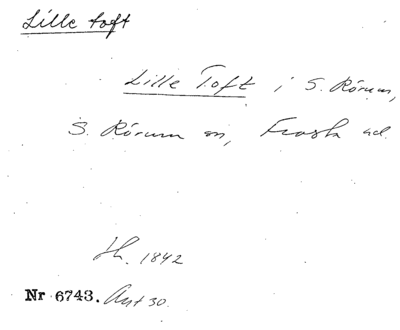 Lille toft
Lille Toft i S. Rörum,
S. Rörum sn, Frosta hd.
Lh. 1842
Nr 6743. Ant 30.